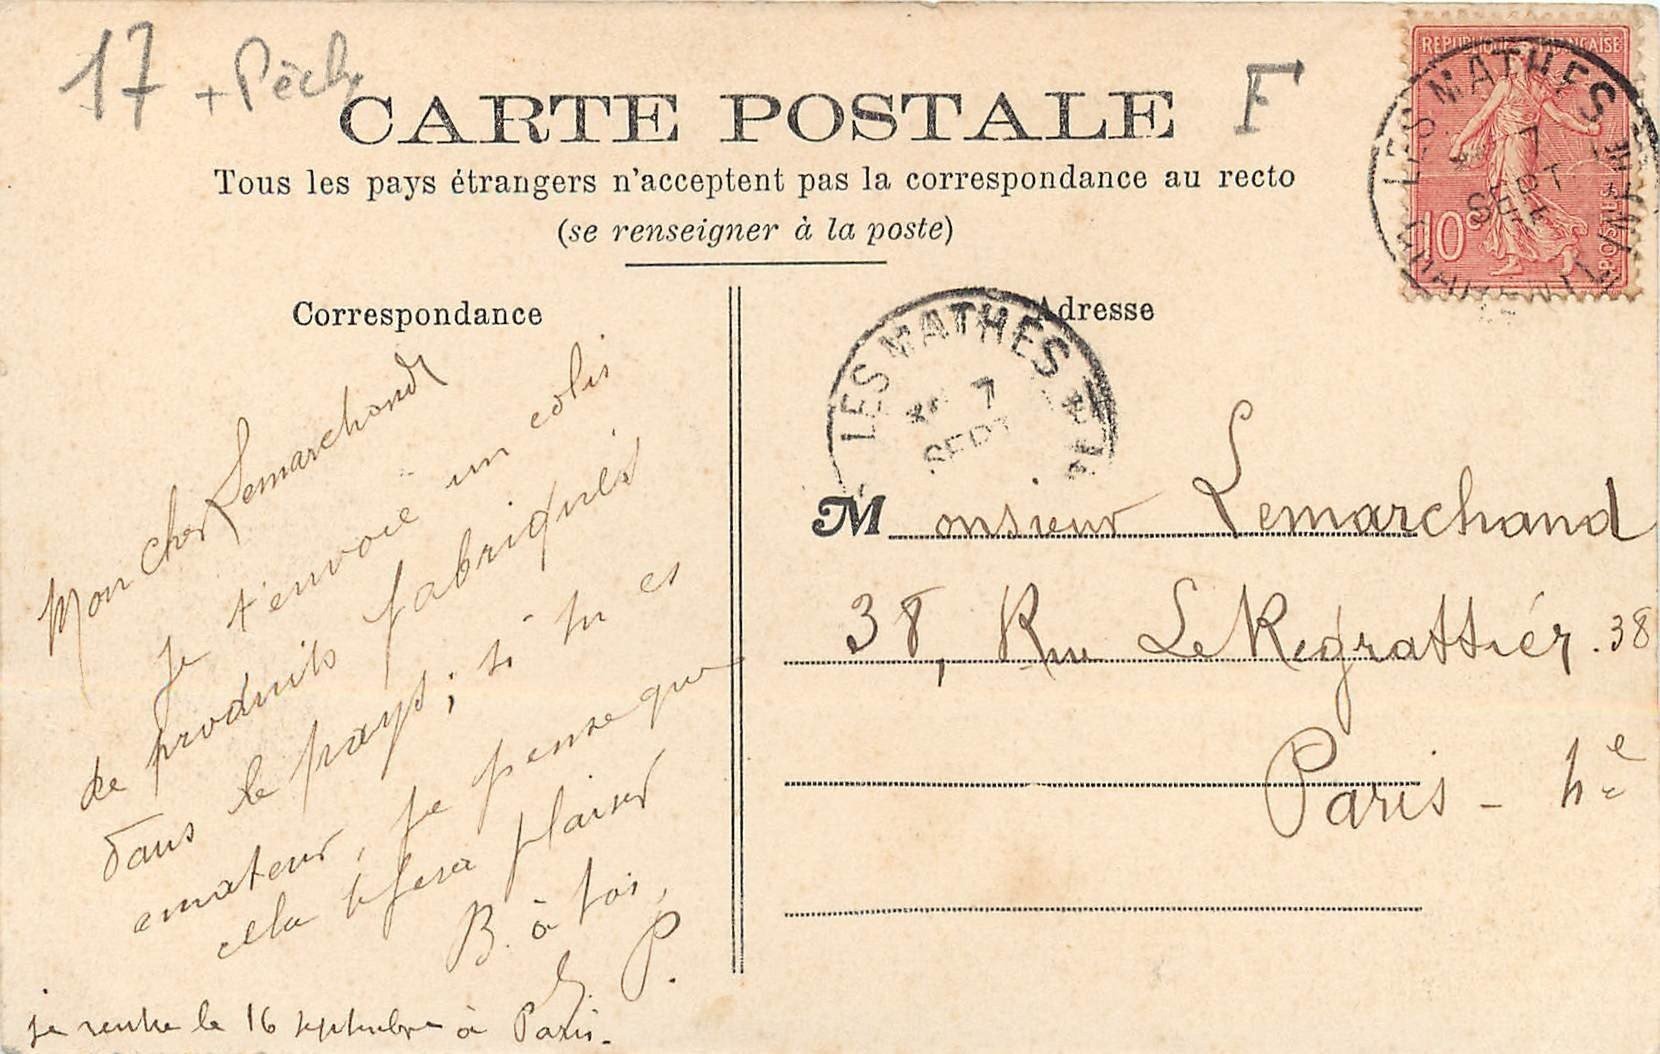 17 + Pêche
CARTE POSTALE
F
Tous les pays étrangers n'acceptent pas la correspondance au recto
(se renseigner à la poste)
REPUBLIQUE FRANÇAISE
10c
POSTES
LES MATHES
7
SEPT
Correspondance
Mon cher Lemarchand
Je t'envoie un colis
de produits fabriqués
dans le pays; si tu es
amateur, je pense que
cela te fera plaisir
B. à toi,
P.
je rentre le 16 septembre à Paris.
Adresse
LES MATHES
7
SEPT
Monsieur Lemarchand
38, Rue Le Regrattiér. 38
Paris - 4e